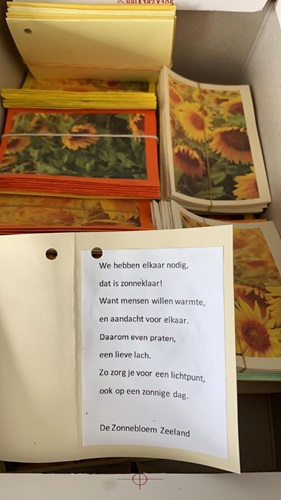 We hebben elkaar nodig,
dat is zonneklaar!
Want mensen willen warmte,
en aandacht voor elkaar.
Daarom even praten,
een lieve lach.
Zo zorg je voor een lichtpunt,
ook op een zonnige dag.
De Zonnebloem Zeeland